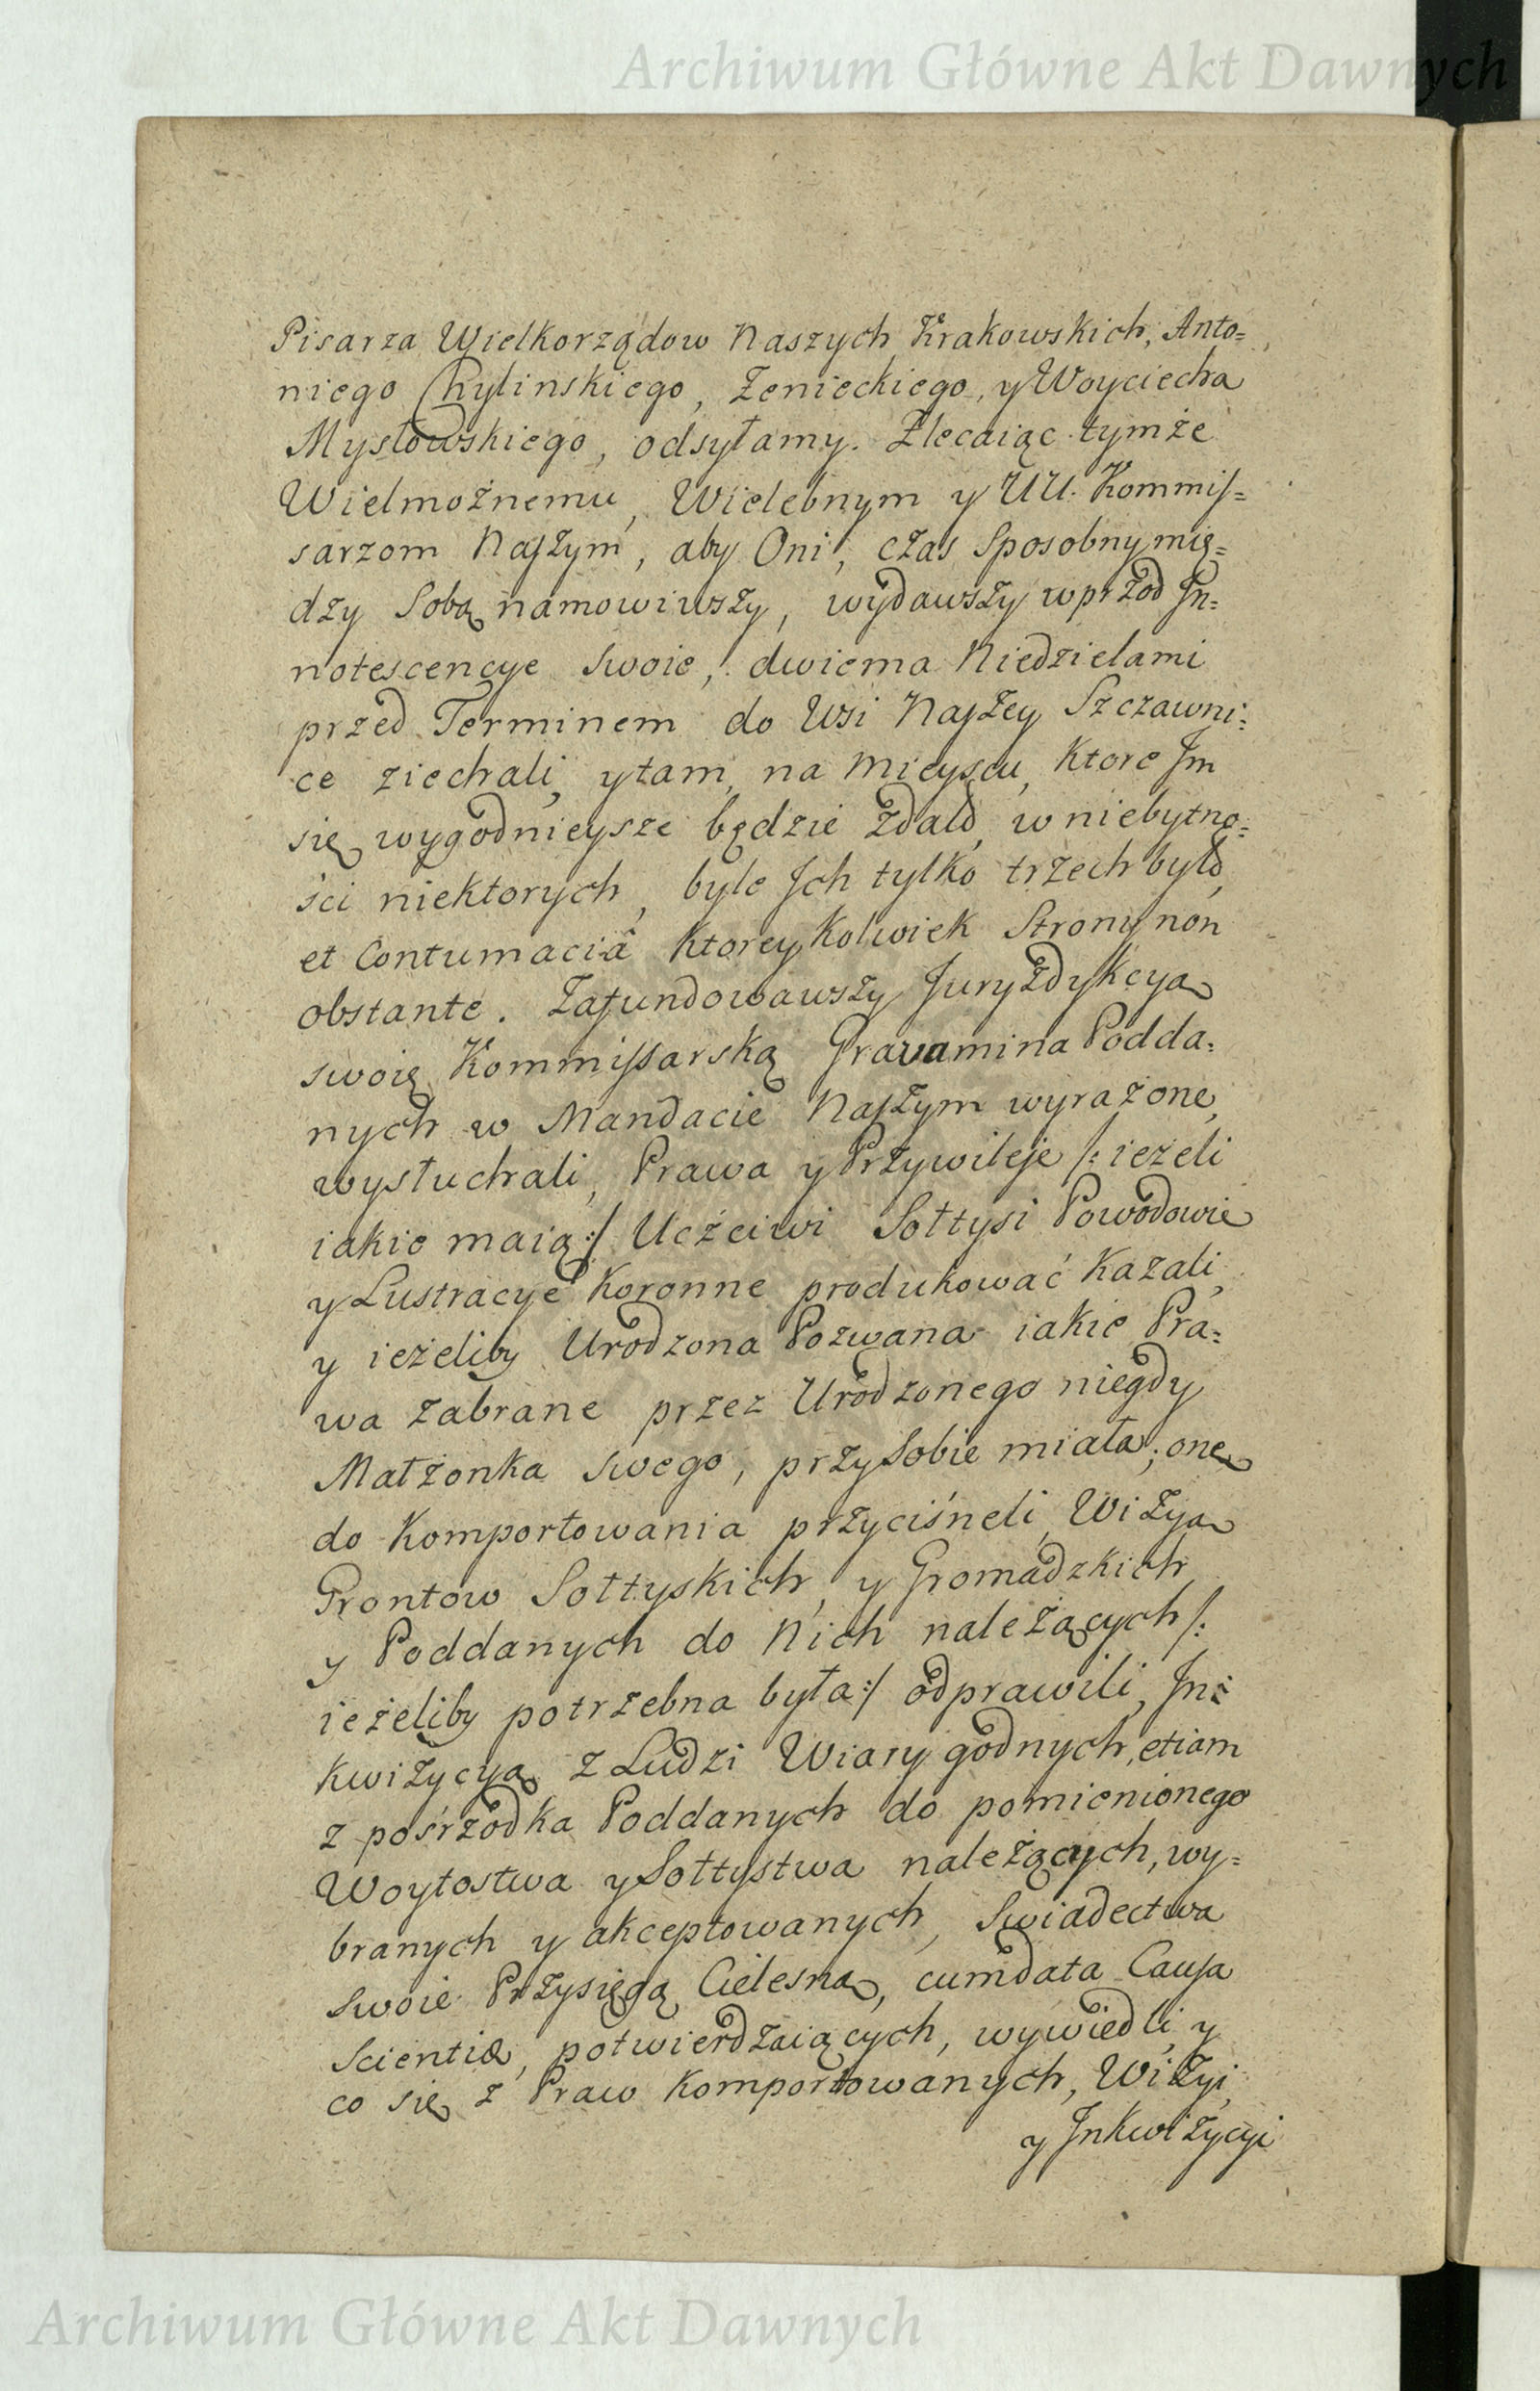 Archiwum Główne Akt Dawnych
Pisarza Wielkorządow Naszych Krakowskich, Anto=
niego Chylinskiego, Zenieckiego, y Woyciecha
Mysłowskiego, odsyłamy. Zlecaiąc tymże
Wielmożnemu, Wielebnym y UU. Kommis=
sarzom Naszym, aby Oni, czas Sposobny mię=
dzy Sobą namowiwszy, wydawszy wprzod In=
notescencye Swoie, dwiema Niedzielami
przed Terminem do Wsi Naszey Szczawni=
ce ziechali, y tam, na Mieyscu, Ktore Im
się wygodnieysze będzie zdało, w niebytno=
ści niektorych, byle Ich tylko trzech było,
et Contumaciâ Ktoreykolwiek Strony non
obstante. Zafundowawszy Juryzdykcyą
swoię Kommissarską Gravamina Podda=
nych w Mandacie Naszym wyrażone,
wysłuchali, Prawa y Przywileje /: ieżeli
iakie maią :/ Uczciwi Sołtysi Powodowie
y Lustracye Koronne produkować Kazali,
y ieżeliby Urodzona Pozwana iakie Pra=
wa zabrane przez Urodzonego niegdy
Małżonka swego, przy Sobie miała, one
do Komportowania przyciśneli, Wizyą
Grontow Sołtyskich, y Gromadzkich
y Poddanych do Nich należących /:
ieżeliby potrzebna była :/ odprawili, In=
kwizycyą z Ludzi Wiary godnych, etiam
z pośrzodka Poddanych do pomienionego
Woytostwa y Sołtystwa należących, wy=
branych y akceptowanych, Swiadectwa
Swoie Przysięgą Cielesną, cum data Causa
Scientiæ, potwierdzaiących, wywiedli, y
co się z Praw Komportowanych, Wizyi,
y Inkwizycyi
Archiwum Główne Akt Dawnych